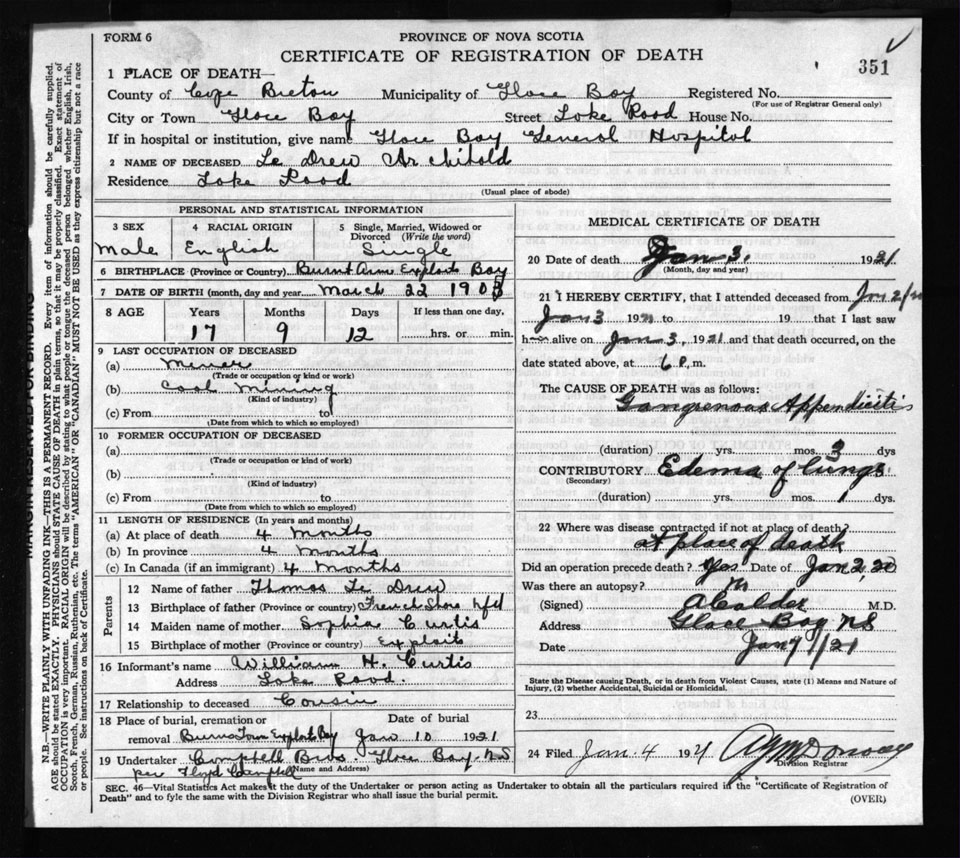 FORM 6
PROVINCE OF NOVA SCOTIA
CERTIFICATE OF REGISTRATION OF DEATH
351
1 PLACE OF DEATH—
County of Cape Breton Municipality of Glace Bay Registered No.
(For use of Registrar General only)
City or Town Glace Bay Street Lake Road House No.
If in hospital or institution, give name Glace Bay General Hospital
2 NAME OF DECEASED Le Drew Archibald
Residence Lake Road
(Usual place of abode)
PERSONAL AND STATISTICAL INFORMATION
3 SEX Male
4 RACIAL ORIGIN English
5 Single, Married, Widowed or Divorced (Write the word) Single
6 BIRTHPLACE (Province or Country) Burnt Arm Exploits Bay
7 DATE OF BIRTH (month, day and year) March 22 1903
8 AGE Years Months Days If less than one day,
17 9 12 hrs. or min.
9 LAST OCCUPATION OF DECEASED
(a) Miner
(Trade or occupation or kind or work)
(b) Coal Mining
(Kind of industry)
(c) From to
(Date from which to which so employed)
10 FORMER OCCUPATION OF DECEASED
(a)
(Trade or occupation or kind or work)
(b)
(Kind of industry)
(c) From to
(Date from which to which so employed)
11 LENGTH OF RESIDENCE (In years and months)
(a) At place of death 4 Months
(b) In province 4 Months
(c) In Canada (if an immigrant) 4 Months
Parents
12 Name of father Thomas Le Drew
13 Birthplace of father (Province or country) French Shore Nfld
14 Maiden name of mother Sophia Curtis
15 Birthplace of mother (Province or country) Exploits
16 Informant's name William H. Curtis
Address Lake Road.
17 Relationship to deceased Cousin
18 Place of burial, cremation or Date of burial
removal Exploits Bay Jan 10 1921
19 Undertaker Campbell Bros. Glace Bay. N S
(Name and Address)
per Floyd Campbell
MEDICAL CERTIFICATE OF DEATH
20 Date of death Jan 3. 1921
(Month, day and year)
21 I HEREBY CERTIFY, that I attended deceased from Jan 2/21
Jan 3 1921 to 19 that I last saw
h alive on Jan 3, 1921 and that death occurred, on the
date stated above, at 6 P. m.
The CAUSE OF DEATH was as follows:
Gangrenous Appendicitis
(duration) yrs. mos. 3 dys
CONTRIBUTORY Edema of lungs
(Secondary)
(duration) yrs. mos. 1 dys.
22 Where was disease contracted if not at place of death?
at place of death
Did an operation precede death? Yes Date of Jan 2, 20
Was there an autopsy?
(Signed) A Calder M.D.
Address Glace Bay NS
Date Jan /21
State the Disease causing Death, or in death from Violent Causes, state (1) Means and Nature of
Injury, (2) whether Accidental, Suicidal or Homicidal.
23
24 Filed Jan. 4 1921
Division Registrar
SEC. 46—Vital Statistics Act makes it the duty of the Undertaker or person acting as Undertaker to obtain all the particulars required in the "Certificate of Registration of
Death" and to fyle the same with the Division Registrar who shall issue the burial permit.
(OVER)
MARGIN RESERVED FOR BINDING
N.B.—WRITE PLAINLY WITH UNFADING INK—THIS IS A PERMANENT RECORD. Every item of information should be carefully supplied.
AGE should be stated EXACTLY. PHYSICIANS should STATE CAUSE OF DEATH in plain terms, so that it may be properly classified. Exact statement of
OCCUPATION is very important. RACIAL ORIGIN will be described by stating to what people or tongue the deceased person belonged whether English, Irish,
Scotch, French, German, Russian, Ruthenian, etc. The terms "AMERICAN" OR "CANADIAN" MUST NOT BE USED as they express citizenship but not a race
or people. See instructions on back of Certificate.